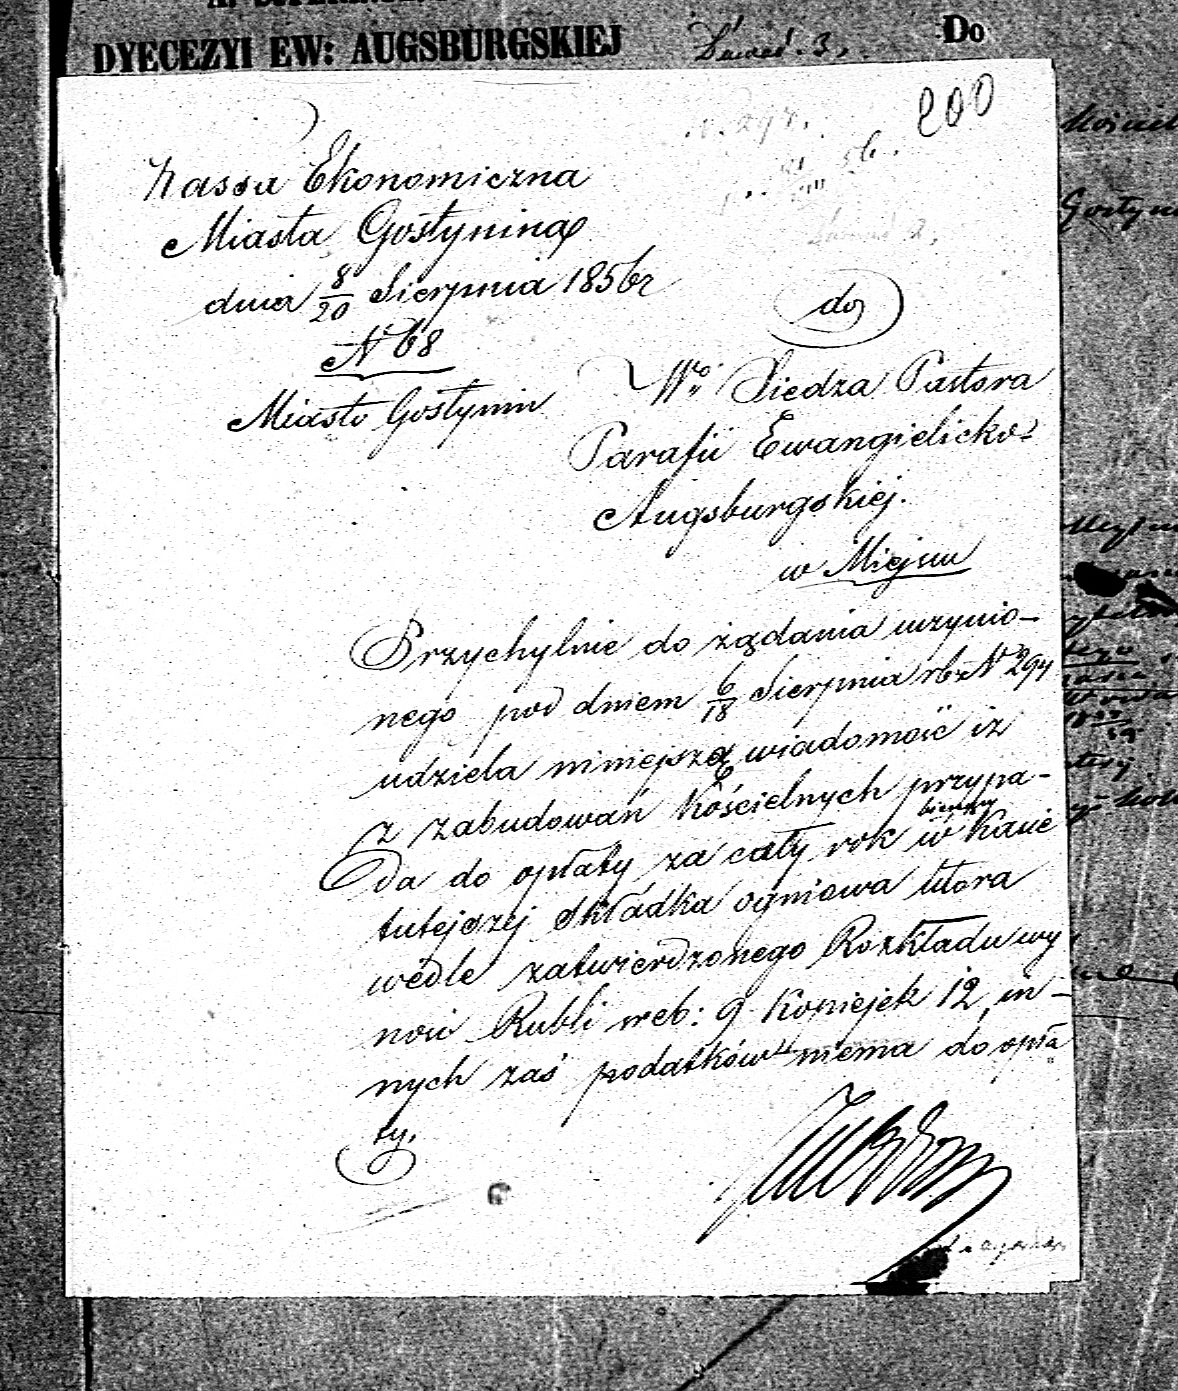 DYECEZYI EW: AUGSBURGSKIEJ
Do
200
Kassa Ekonomiczna
Miasta Gostynina
dnia 8/20 Sierpnia 1856 r
N 68
Miasto Gostynin
do
Wo Xiedza Pastora
Parafii Ewangielicko-
Augsburgskiej.
w Miejscu
Przychylnie do żądania uczynio-
nego pod dniem 6/18 Sierpnia rb N 294
udziela niniejszą wiadomość iż
z zabudowań Kościelnych przypa-
da do opłaty za cały rok bieżący w Kasie
tutejszej składka ogniowa która
wedle zatwierdzonego Rozkładu wy
nosi Rubli sreb: 9 Kopiejek 12, in-
nych zaś podatków niema do opła
ty.